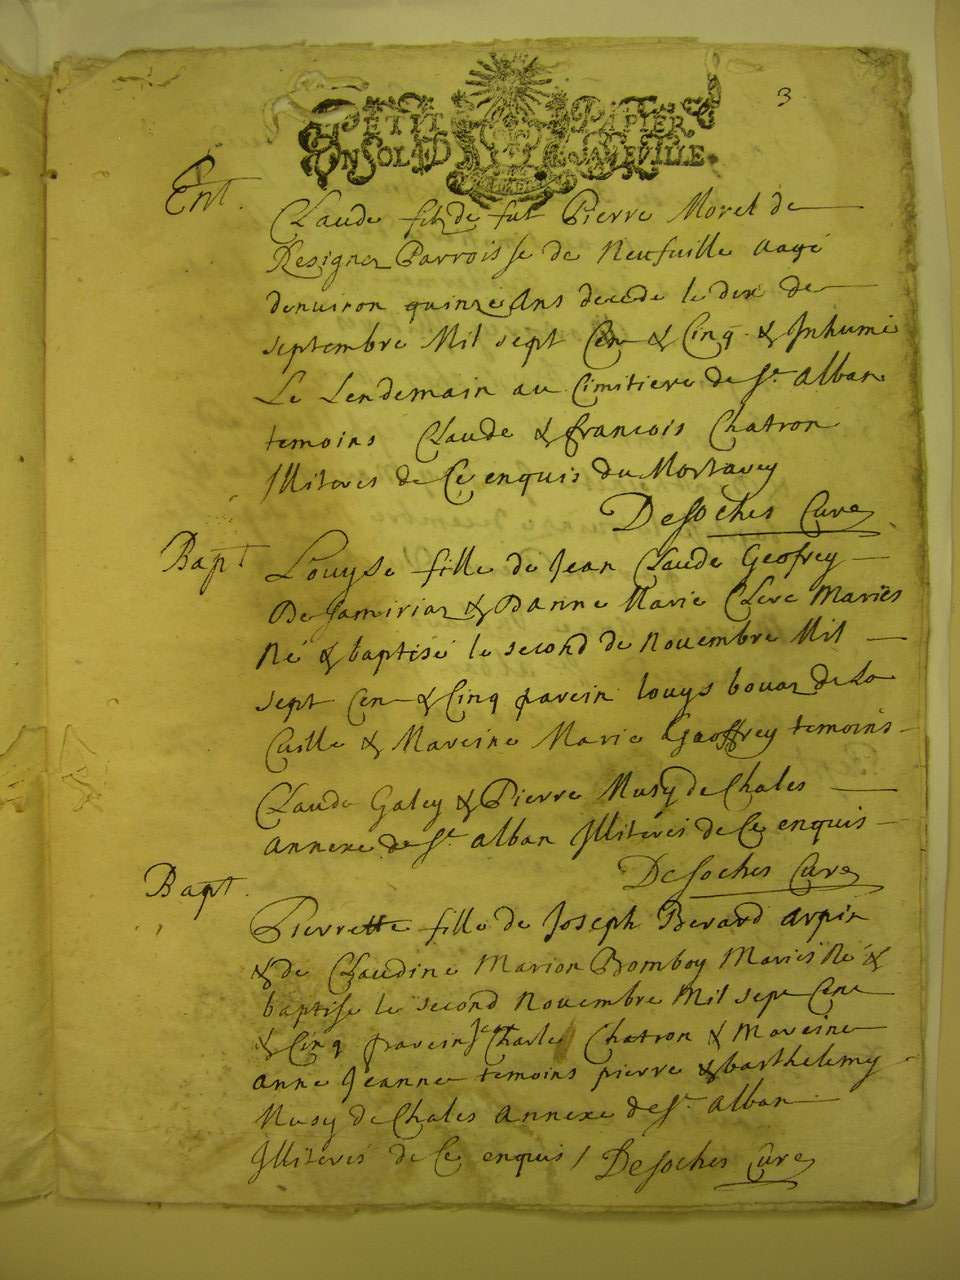 3
PETIT PAPIER
UN SOL LA FEVILLE
Ent.
Claude filz de fut Pierre Morel de
Resignez Parroisse de Neufuille aagé
denuiron quinze Ans decede le dix de
septembre Mil sept Cen & Cinq & Inhumé
Le Lendemain au Cimitiere de St. alban
temoins Claude & francois Chatron
Illiteres de Ce enquis du Mortarey
Desoches Cure
Bapt
Louyse fille de Jean Claude Geofrey
De & Danne Marie Clere Mariés
Né & baptisé le second de Nouembre Mil
sept Cen & Cinq parein louys bouaz de La
Cuille & Mareine Marie Gaoffrey temoins
Claude Galey & Pierre Musy de Chales
annexe de St. alban Illiterés de Ce enquis
Desoches Cure
Bapt.
Pierrette fille de Joseph Berard arpin
& de Claudine Marion Bomboy Mariés Né &
baptise le second Nouembre Mil sept Cent
& Cinq parein Jean Charle Chatron & Mareine
anne Jeanne temoins pierre & barthelemy
Musy de Chales annexe de St. alban
Illiterés de Ce enquis / Desoches Cure